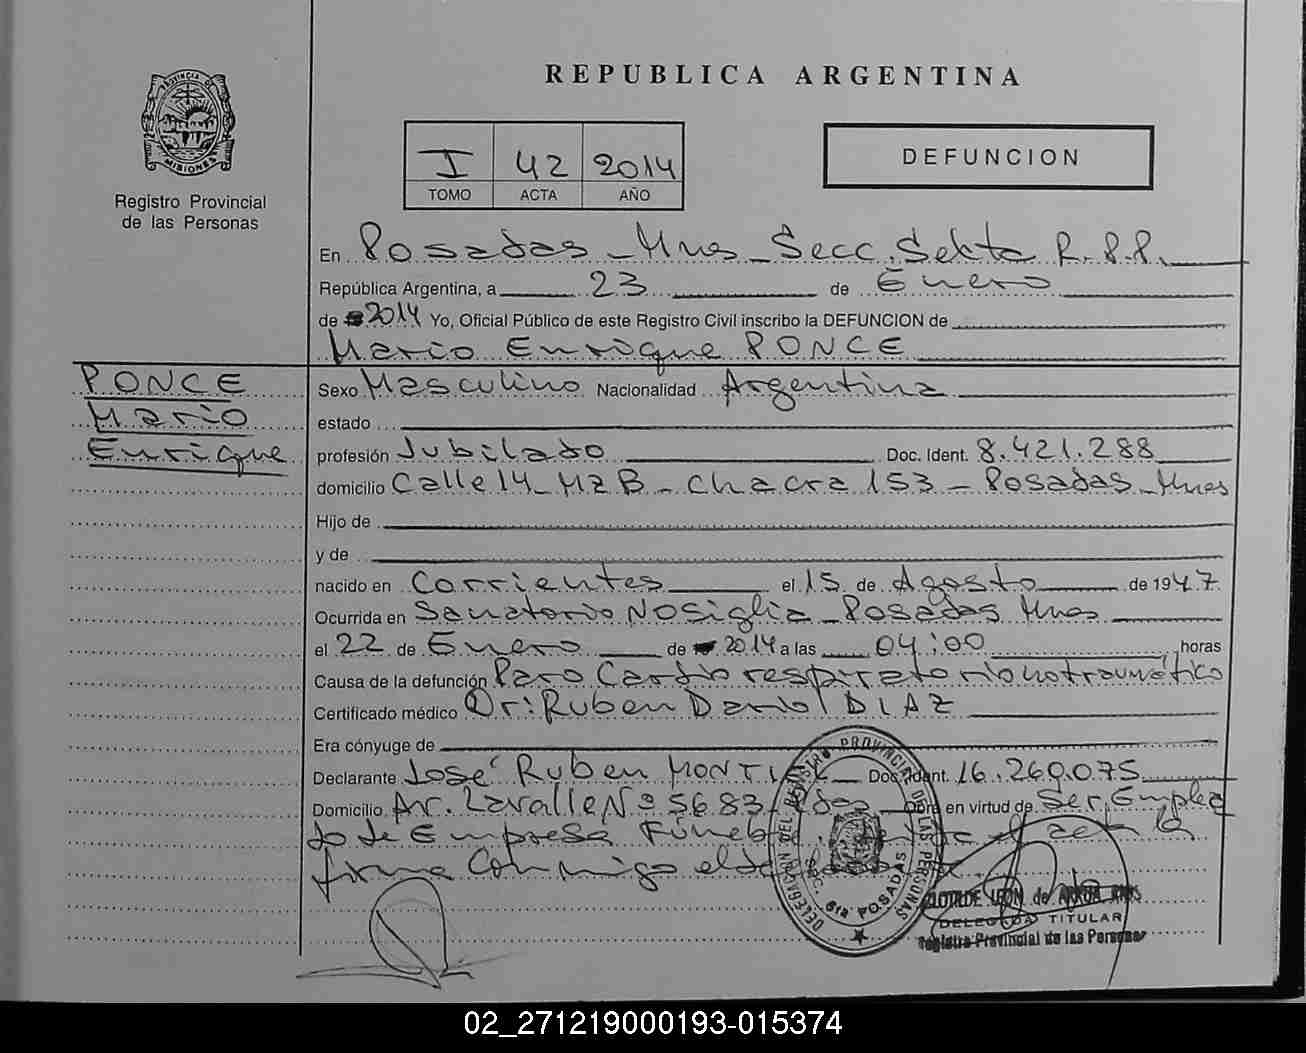 REPUBLICA ARGENTINA
PROVINCIA DE
MISIONES
Registro Provincial
de las Personas
I 42 2014
TOMO ACTA AÑO
DEFUNCION
En Posadas - Mnes - Secc. Sexta R.P.P.
República Argentina, a 23 de Enero
de 2014 Yo, Oficial Público de este Registro Civil inscribo la DEFUNCION de
Mario Enrique PONCE
PONCE
Mario
Enrique
Sexo Masculino Nacionalidad Argentina
estado
profesión Jubilado Doc. Ident. 8.421.288
domicilio Calle 14 - Mz B - Chacra 153 - Posadas - Mnes
Hijo de
y de
nacido en Corrientes el 15 de Agosto de 1947
Ocurrida en Sanatorio NOSiglia - Posadas Mnes
el 22 de Enero de 2014 a las 04:00 horas
Causa de la defunción Paro Cardio respiratorio no traumático
Certificado médico Dr: Ruben Dario DIAZ
Era cónyuge de
Declarante José Ruben Doc. Ident. 16.260.075
Domicilio Av. Lavalle Nº 5683 Obra en virtud de Ser Emplea
do de Empresa Fúnebre acta
firma Conmigo
DELEGACION DEL REGISTRO PROVINCIAL DE LAS PERSONAS
SEC. 6ta POSADAS
CLOTILDE LEON de
DELEGADA TITULAR
Registro Provincial de las Personas
02_271219000193-015374